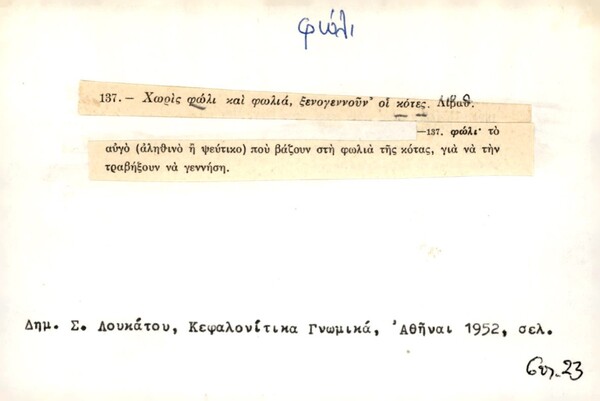 φώλι
137. — Χωρὶς φώλι καὶ φωλιά, ξενογεννοῦν' οἱ κότες. Λιβαθ.
—137. φώλι· τὸ
αὐγὸ (ἀληθινὸ ἢ ψεύτικο) ποὺ βάζουν στὴ φωλιὰ τῆς κότας, γιὰ νὰ τὴν
τραβήξουν νὰ γεννήση.
Δημ. Σ. Λουκάτου, Κεφαλονίτικα Γνωμικά, Ἀθῆναι 1952, σελ.
σελ. 23